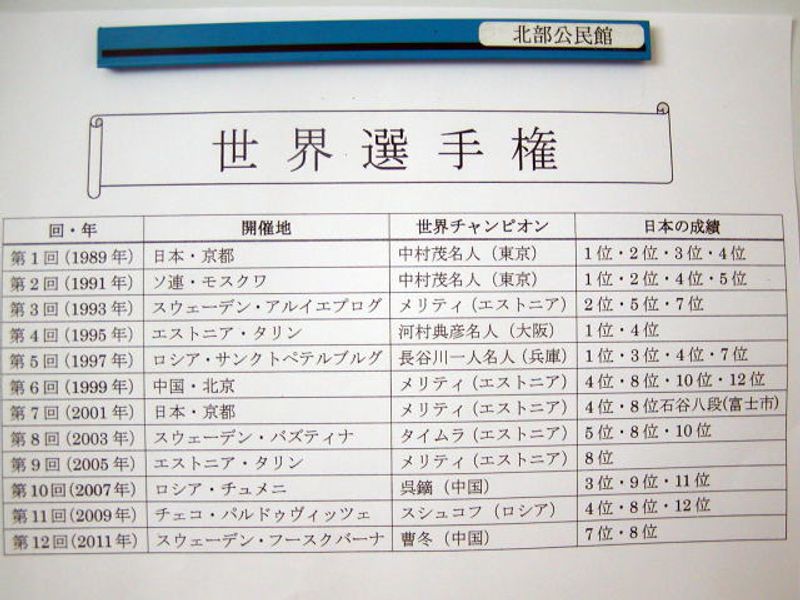 北部公民館
世界選手権
回・年 開催地 世界チャンピオン 日本の成績
第1回(1989年) 日本・京都 中村茂名人(東京) 1位・2位・3位・4位
第2回(1991年) ソ連・モスクワ 中村茂名人(東京) 1位・2位・4位・5位
第3回(1993年) スウェーデン・アルイエプログ メリティ(エストニア) 2位・5位・7位
第4回(1995年) エストニア・タリン 河村典彦名人(大阪) 1位・4位
第5回(1997年) ロシア・サンクトペテルブルグ 長谷川一人名人(兵庫) 1位・3位・4位・7位
第6回(1999年) 中国・北京 メリティ(エストニア) 4位・8位・10位・12位
第7回(2001年) 日本・京都 メリティ(エストニア) 4位・8位石谷八段(富士市)
第8回(2003年) スウェーデン・バズティナ タイムラ(エストニア) 5位・8位・10位
第9回(2005年) エストニア・タリン メリティ(エストニア) 8位
第10回(2007年) ロシア・チュメニ 呉鏑(中国) 3位・9位・11位
第11回(2009年) チェコ・パルドゥヴィッツェ スシュコフ(ロシア) 4位・8位・12位
第12回(2011年) スウェーデン・フースクバーナ 曹冬(中国) 7位・8位